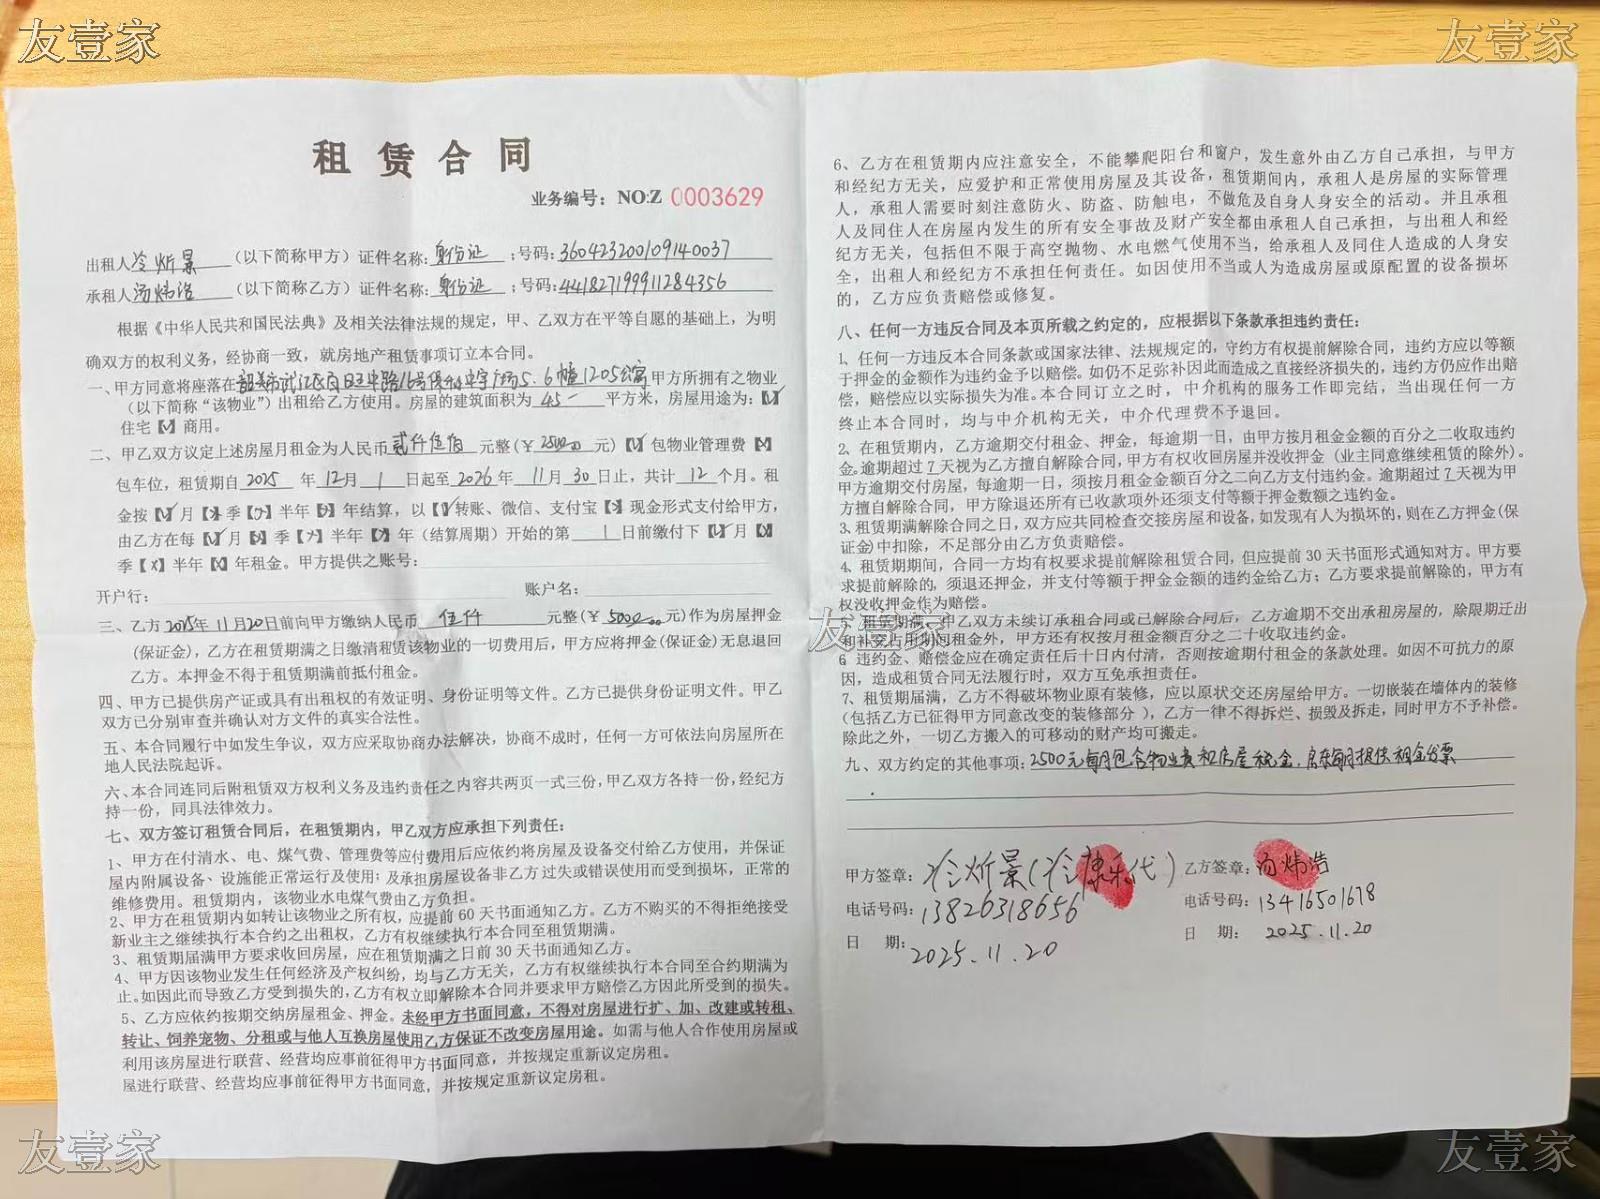 友壹家
友壹家
租赁合同
业务编号：NO:Z 0003629
出租人冷炘景（以下简称甲方）证件名称:身份证;号码:360423200109140037
承租人汤炜浩（以下简称乙方）证件名称:身份证;号码:441827199911284356
根据《中华人民共和国民法典》及相关法律法规的规定，甲、乙双方在平等自愿的基础上，为明
确双方的权利义务，经协商一致，就房地产租赁事项订立本合同。
一、甲方同意将座落在韶关市武江区 中路16号 广场5.6幢1205公寓甲方所拥有之物业
（以下简称“该物业”）出租给乙方使用。房屋的建筑面积为 45 平方米，房屋用途为:【√】
住宅【×】商用。
二、甲乙双方议定上述房屋月租金为人民币贰仟伍佰元整(￥2500.00元)【√】包物业管理费【×】
包车位，租赁期自2025年12月1日起至2026年11月30日止，共计12个月。租
金按【√】月【×】季【×】半年【×】年结算，以【√】转账、微信、支付宝【×】现金形式支付给甲方，
由乙方在每【√】月【×】季【×】半年【×】年（结算周期）开始的第 1 日前缴付下【√】月【×】
季【×】半年【×】年租金。甲方提供之账号:
开户行: 账户名:
三、乙方2025年11月20日前向甲方缴纳人民币 伍仟 元整(￥5000.00元)作为房屋押金
(保证金)，乙方在租赁期满之日缴清租赁该物业的一切费用后，甲方应将押金(保证金)无息退回
乙方。本押金不得于租赁期满前抵付租金。
四、甲方已提供房产证或具有出租权的有效证明、身份证明等文件。乙方已提供身份证明文件。甲乙
双方已分别审查并确认对方文件的真实合法性。
五、本合同履行中如发生争议，双方应采取协商办法解决，协商不成时，任何一方可依法向房屋所在
地人民法院起诉。
六、本合同连同后附租赁双方权利义务及违约责任之内容共两页一式三份，甲乙双方各持一份，经纪方
持一份，同具法律效力。
七、双方签订租赁合同后，在租赁期内，甲乙双方应承担下列责任:
1、甲方在付清水、电、煤气费、管理费等应付费用后应依约将房屋及设备交付给乙方使用，并保证
屋内附属设备、设施能正常运行及使用;及承担房屋设备非乙方过失或错误使用而受到损坏，正常的
维修费用。租赁期内，该物业水电煤气费由乙方负担。
2、甲方在租赁期内如转让该物业之所有权，应提前60天书面通知乙方。乙方不购买的不得拒绝接受
新业主之继续执行本合约之出租权，乙方有权继续执行本合同至租赁期满。
3、租赁期届满甲方要求收回房屋，应在租赁期满之日前30天书面通知乙方。
4、甲方因该物业发生任何经济及产权纠纷，均与乙方无关，乙方有权继续执行本合同至合约期满为
止。如因此而导致乙方受到损失的，乙方有权立即解除本合同并要求甲方赔偿乙方因此所受到的损失。
5、乙方应依约按期交纳房屋租金、押金。未经甲方书面同意，不得对房屋进行扩、加、改建或转租、
转让、饲养宠物、分租或与他人互换房屋使用乙方保证不改变房屋用途。如需与他人合作使用房屋或
利用该房屋进行联营、经营均应事前征得甲方书面同意，并按规定重新议定房租。
屋进行联营、经营均应事前征得甲方书面同意，并按规定重新议定房租。
6、乙方在租赁期内应注意安全，不能攀爬阳台和窗户，发生意外由乙方自己承担，与甲方
和经纪方无关，应爱护和正常使用房屋及其设备，租赁期间内，承租人是房屋的实际管理
人，承租人需要时刻注意防火、防盗、防触电，不做危及自身人身安全的活动。并且承租
人及同住人在房屋内发生的所有安全事故及财产安全都由承租人自己承担，与出租人和经
纪方无关，包括但不限于高空抛物、水电燃气使用不当，给承租人及同住人造成的人身安
全，出租人和经纪方不承担任何责任。如因使用不当或人为造成房屋或原配置的设备损坏
的，乙方应负责赔偿或修复。
八、任何一方违反合同及本页所载之约定的，应根据以下条款承担违约责任:
1、任何一方违反本合同条款或国家法律、法规规定的，守约方有权提前解除合同，违约方应以等额
于押金的金额作为违约金予以赔偿。如仍不足弥补因此而造成之直接经济损失的，违约方仍应作出赔
偿，赔偿应以实际损失为准。本合同订立之时，中介机构的服务工作即完结，当出现任何一方
终止本合同时，均与中介机构无关，中介代理费不予退回。
2、在租赁期内，乙方逾期交付租金、押金，每逾期一日，由甲方按月租金金额的百分之二收取违约
金。逾期超过7天视为乙方擅自解除合同，甲方有权收回房屋并没收押金（业主同意继续租赁的除外）。
甲方逾期交付房屋，每逾期一日，须按月租金金额百分之二向乙方支付违约金。逾期超过7天视为甲
方擅自解除合同，甲方除退还所有已收款项外还须支付等额于押金数额之违约金。
3、租赁期满解除合同之日，双方应共同检查交接房屋和设备，如发现有人为损坏的，则在乙方押金(保
证金)中扣除，不足部分由乙方负责赔偿。
4、租赁期期间，合同一方均有权要求提前解除租赁合同，但应提前30天书面形式通知对方。甲方要
求提前解除的，须退还押金，并支付等额于押金金额的违约金给乙方；乙方要求提前解除的，甲方有
权没收押金作为赔偿。
租赁期满、甲乙双方未续订承租合同或已解除合同后，乙方逾期不交出承租房屋的，除限期迁出
和补交占用期间租金外，甲方还有权按月租金额百分之二十收取违约金。
友壹家
6 违约金、赔偿金应在确定责任后十日内付清，否则按逾期付租金的条款处理。如因不可抗力的原
因，造成租赁合同无法履行时，双方互免承担责任。
7、租赁期届满，乙方不得破坏物业原有装修，应以原状交还房屋给甲方。一切嵌装在墙体内的装修
（包括乙方已征得甲方同意改变的装修部分），乙方一律不得拆烂、损毁及拆走，同时甲方不予补偿。
除此之外，一切乙方搬入的可移动的财产均可搬走。
九、双方约定的其他事项:2500元每月包含物业费和房屋税金，房东每月提供租金发票
甲方签章:冷炘景(冷康乐代)
电话号码:13826318656
日 期:2025.11.20
乙方签章:汤炜浩
电话号码:13416501678
日 期: 2025.11.20
友壹家
友壹家